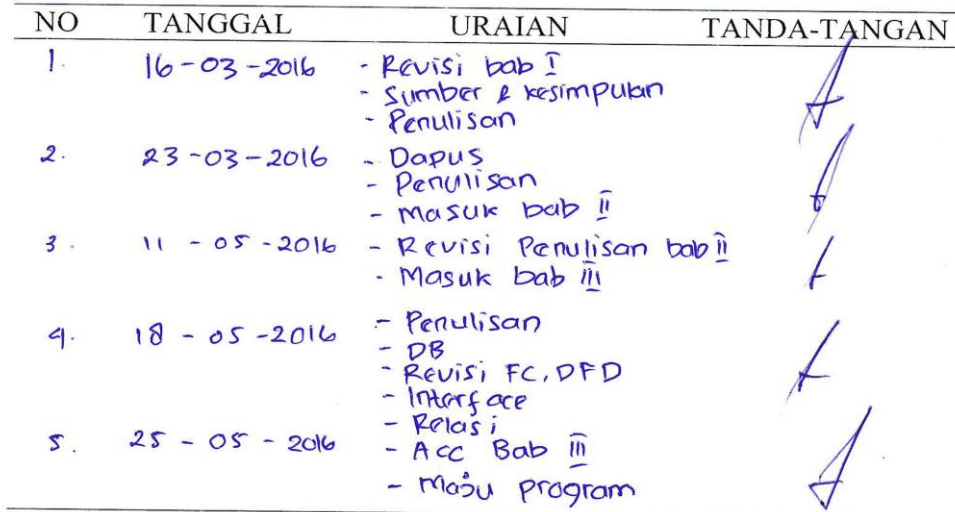 NO TANGGAL URAIAN TANDA-TANGAN
1. 16-03-2016 - Revisi bab I
- Sumber & kesimpulan
- Penulisan
2. 23-03-2016 - Dapus
- Penulisan
- Masuk bab II
3. 11-05-2016 - Revisi Penulisan bab II
- Masuk bab III
4. 18-05-2016 - Penulisan
- DB
- Revisi FC, DFD
- Interface
- Relasi
5. 25-05-2016 - Acc Bab III
- Maju program